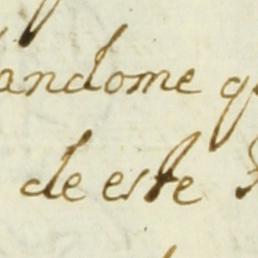 andome
de este